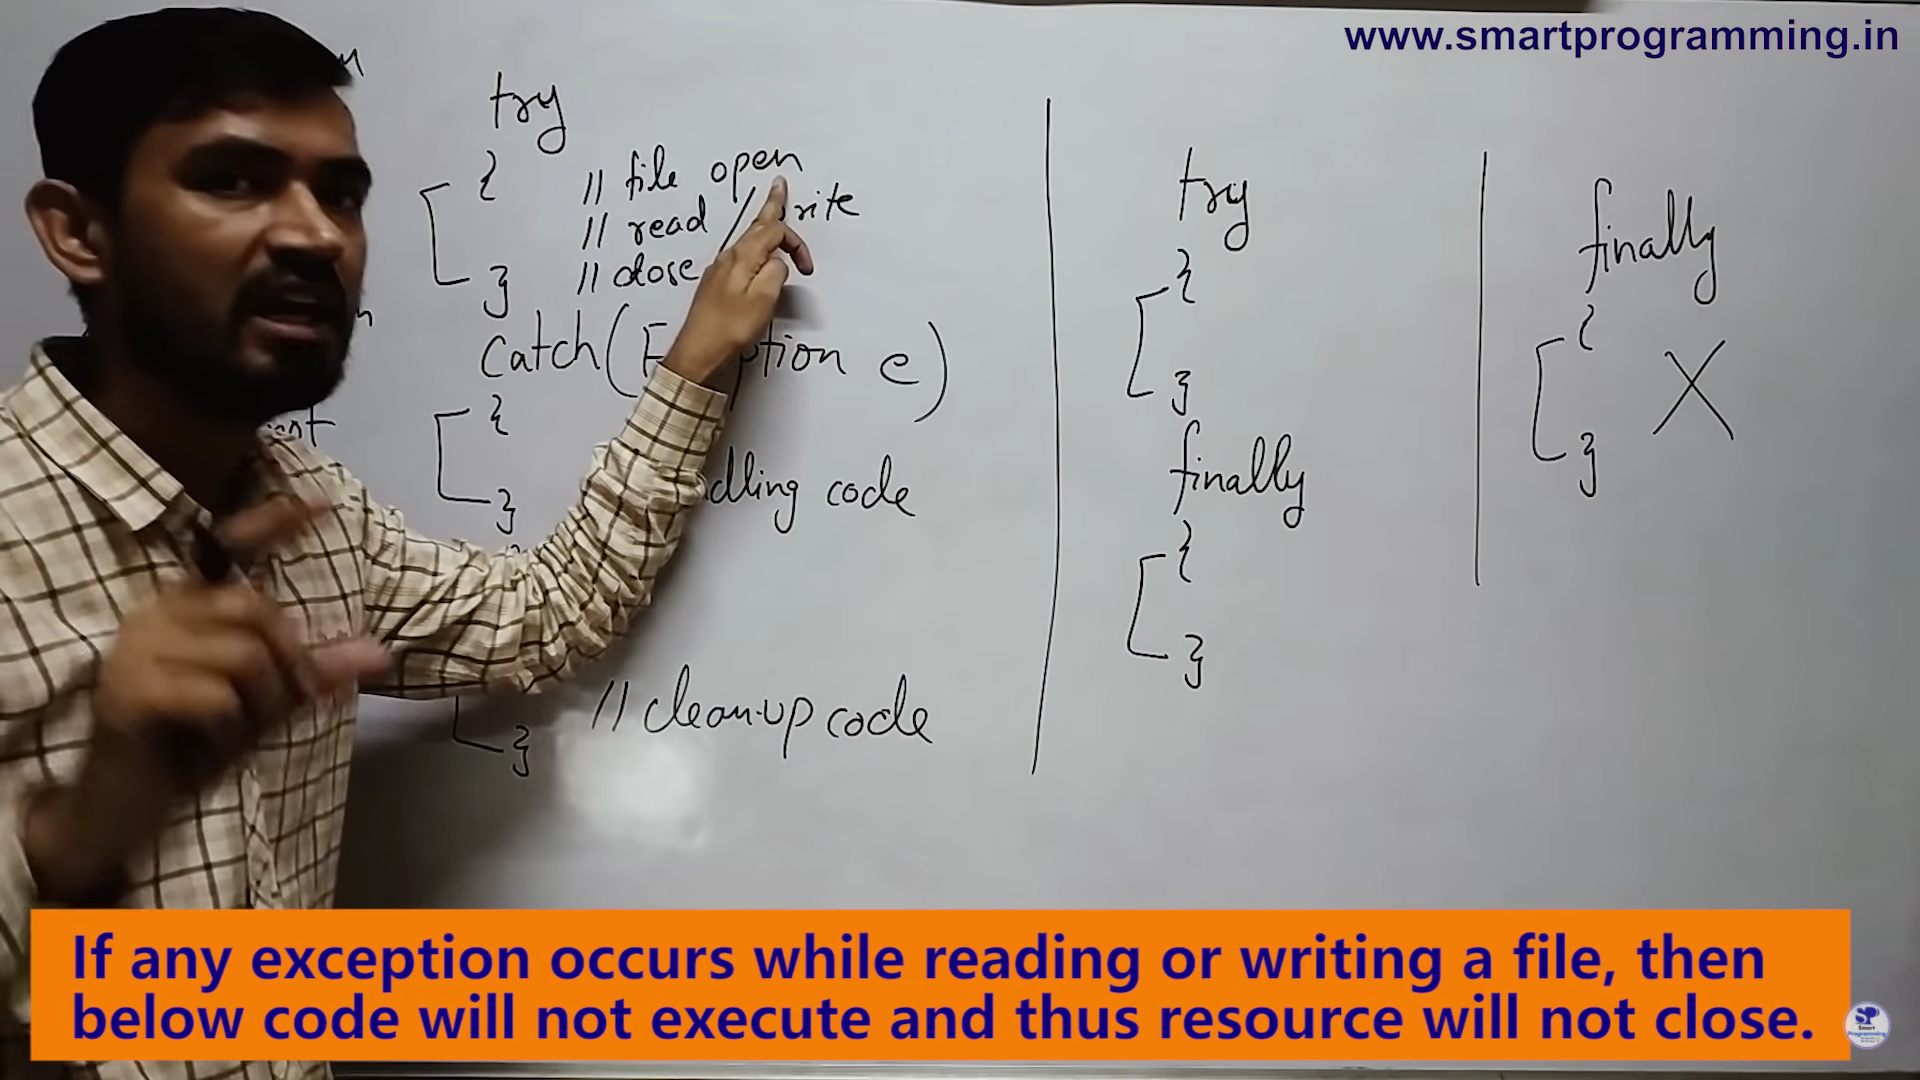 www.smartprogramming.in
try
{ // file open
// read /
} // close
catch( e)
{
code
}
// clean-up code
}
try
{
}
finally
{
}
finally
{
X
}
If any exception occurs while reading or writing a file, then
below code will not execute and thus resource will not close.
SP
Smart
Programming